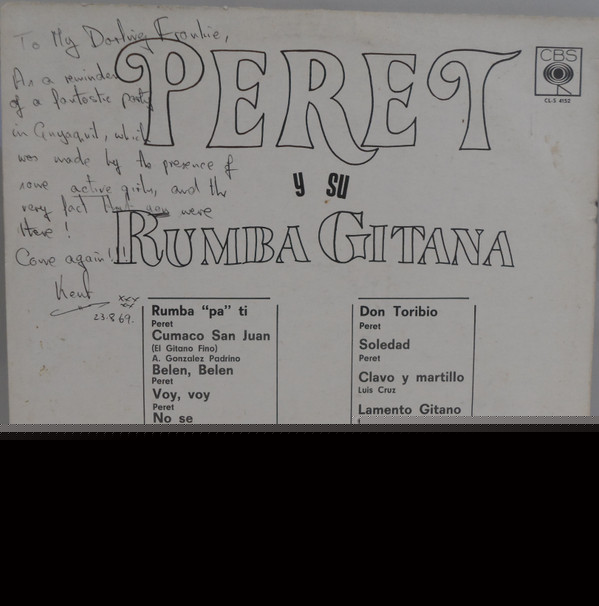 To My Darling Frankie,
As a reminder
of a fantastic party
in Guayaquil, which
was made by the presence of
some active girls, and the
very fact that you were
there!
Come again!!
Kent
xxx
xx
23.8.69.
PERET
y su
RUMBA GITANA
CBS
CLS 4152
Rumba "pa" ti
Peret
Cumaco San Juan
(El Gitano Fino)
A. Gonzalez Padrino
Belen, Belen
Peret
Voy, voy
Peret
No se
Don Toribio
Peret
Soledad
Peret
Clavo y martillo
Luis Cruz
Lamento Gitano